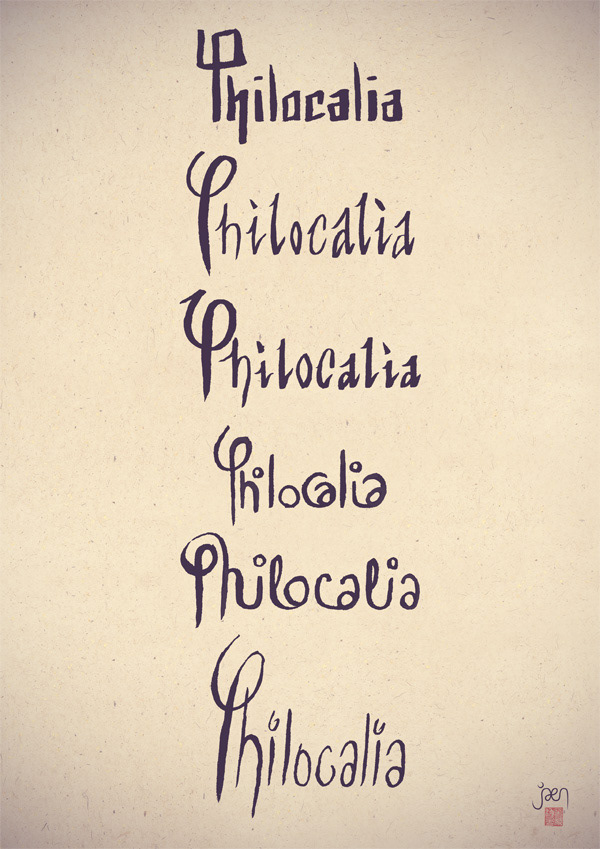 Philocalia
Philocalia
Philocalia
Philocalia
Philocalia
Philocalia
jaen